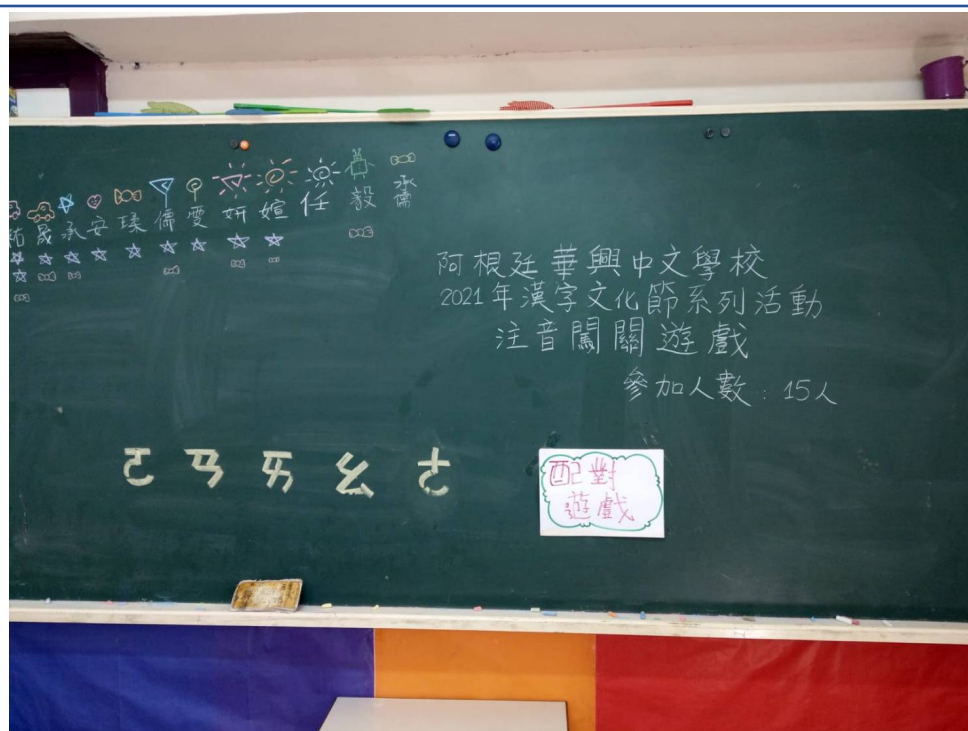 晟 承 安 儒 雯 妍 媗 任 毅 承儒
阿根廷華興中文學校
2021年漢字文化節系列活動
注音闖關遊戲
參加人數：15人
ㄛ ㄢ ㄞ ㄠ ㄜ
配對
遊戲